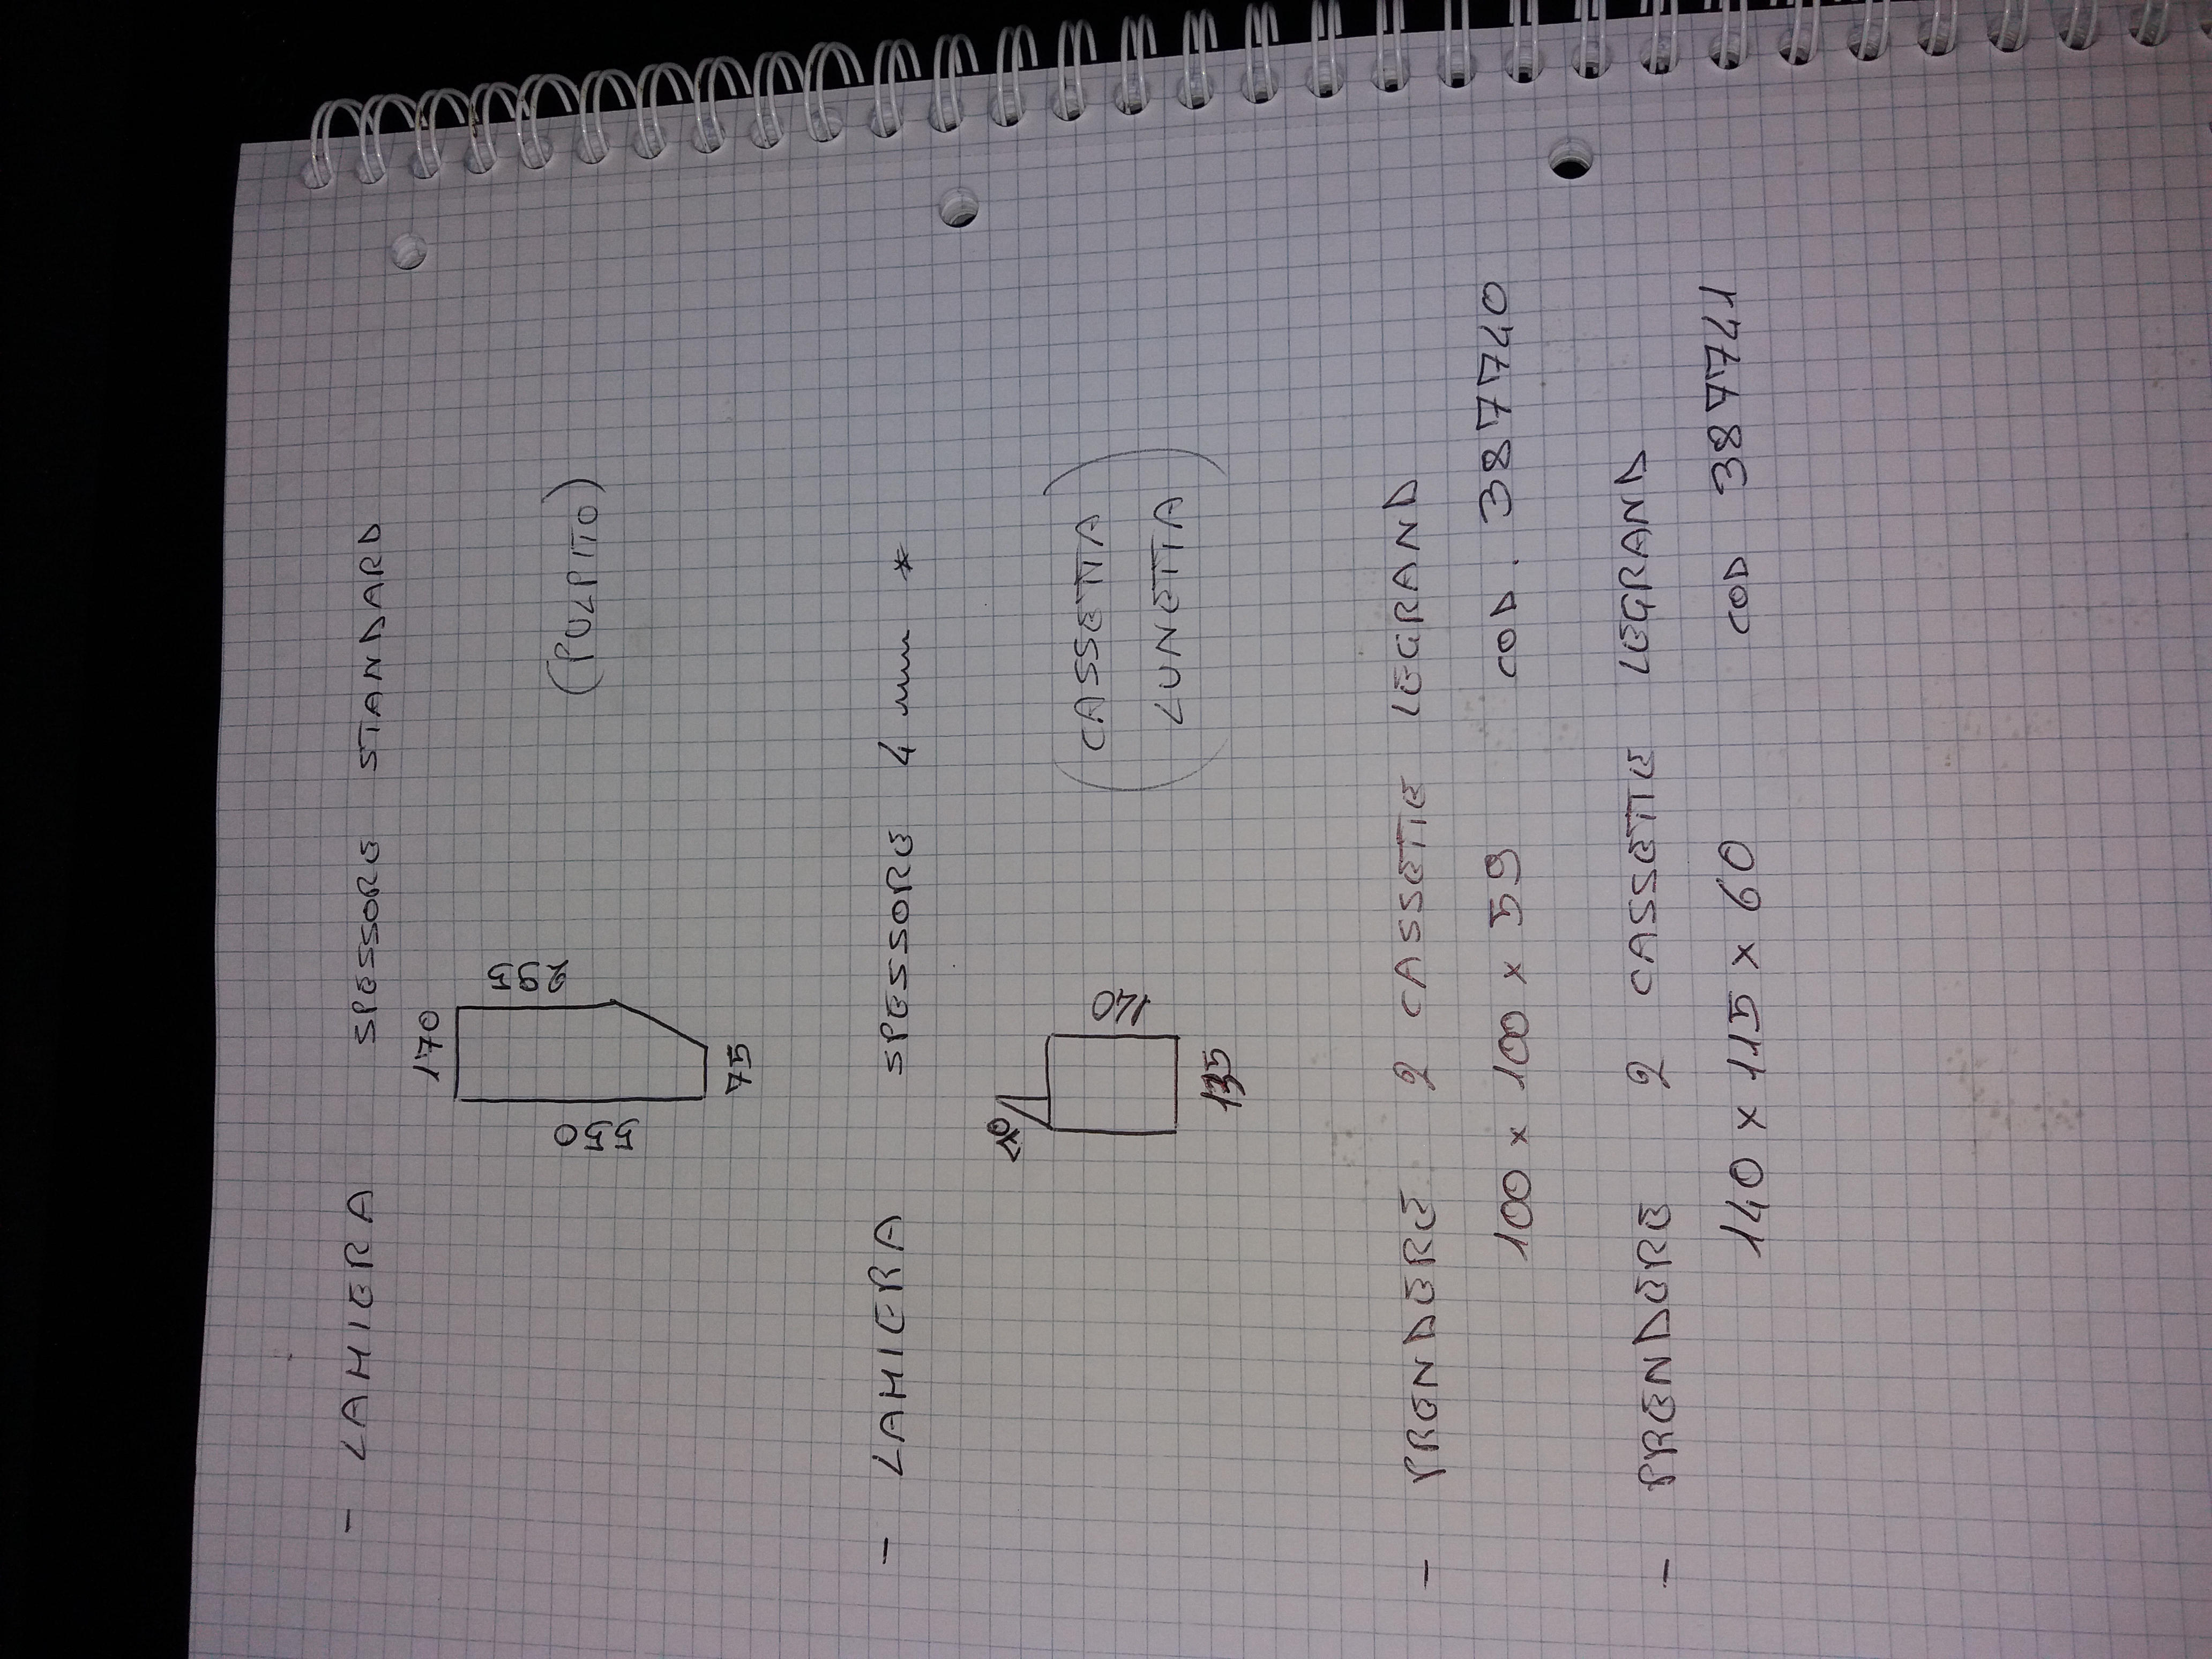 - LAMIERA SPESSORE STANDARD
170
550
295
(PULPITO)
75
- LAMIERA SPESSORE 4 mm *
140
(CASSETTA
LUNETTA)
135
- PRENDERE 2 CASSETTE LEGRAND
100 x 100 x 59 COD. 387740
- PRENDERE 2 CASSETTE LEGRAND
140 x 115 x 60 COD 387741